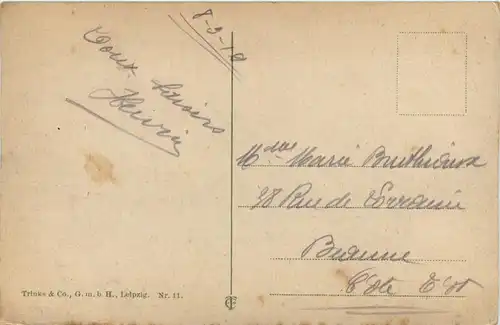 8-9-18
Doux baisers
Henri
Mdme Marie Buthiaux
38 Rue de Lorraine
Beaune
Côte d'Or
Trinks & Co., G. m. b. H., Leipzig. Nr. 11.